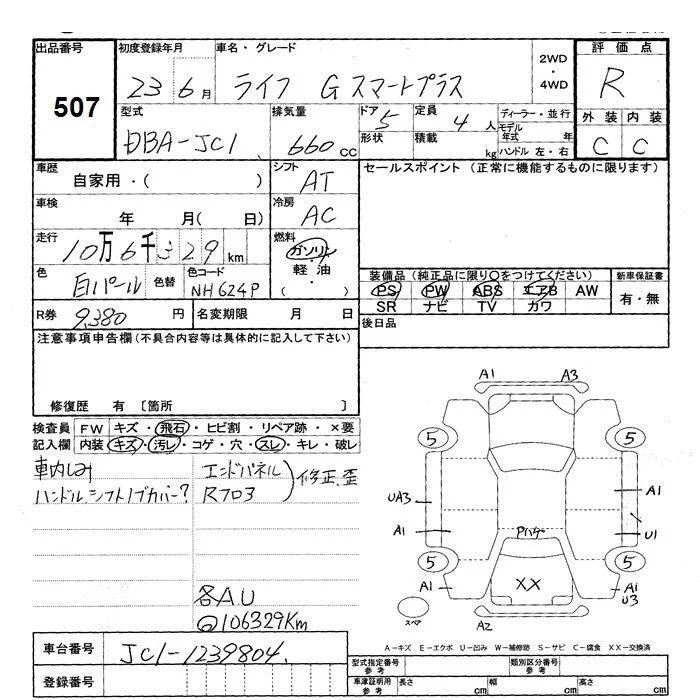 出品番号
507
初度登録年月
23年6月
車名・グレード
ライフ G スマートプラス
2WD
・
4WD
評価点
R
外装 内装
C C
型式
DBA-JC1
排気量
660cc
ドア 5
形状
定員 4人
積載 kg
ディーラー・並行
モデル年式 年
ハンドル 左・右
車歴
自家用・( )
シフト
AT
セールスポイント (正常に機能するものに限ります)
車検
年 月( 日)
冷房
AC
走行
10万6千329km
燃料
ガソリン
・
軽油
( ・ )
色
白パール
色替
色コード
NH624P
装備品 (純正品に限り〇をつけてください)
PS PW ABS エアB AW
SR ナビ TV カワ
新車保証書
有・無
R券 9,380円
名変期限 月 日
後日品
注意事項申告欄 (不具合内容等は具体的に記入して下さい)
修復歴 有 〔箇所 〕
検査員記入欄
FW キズ・飛石・ヒビ割・リペア跡・×要
内装 キズ・汚レ・コゲ・穴・スレ・キレ・破レ
車内しみ
ハンドル,シフトノブカバー?
エンドパネル
Rフロ3
修正、歪
各AU
@106329Km
A1
A3
5
5
UA3
A1
A1
U1
Pハゲ
5
5
XX
A1
A1
U3
スペア
A2
A-キズ E-エクボ U-凹み W-補修跡 S-サビ C-腐食 XX-交換済
車台番号
JC1-1239804
登録番号
型式指定番号
参考
類別区分番号
参考
車庫証明用
参考
長さ cm
幅 cm
高さ cm